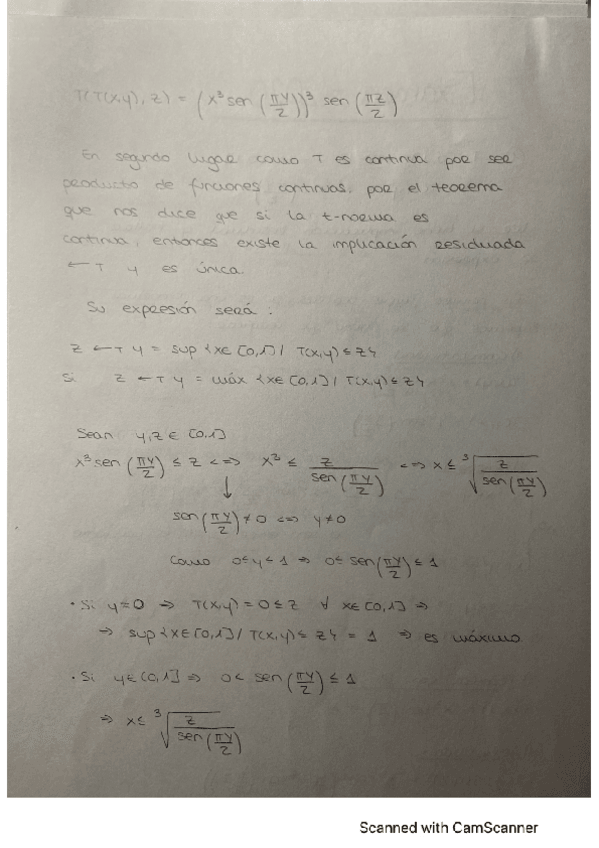 T(T(x,y), z) = (x³ sen (πy/2))³ sen (πz/2)
En segundo lugar como T es continua por ser
producto de funciones continuas, por el teorema
que nos dice que si la t-norma es
continua, entonces existe la implicación residuada
←T y es única.
Su expresión será:
z ←T y = sup {x∈[0,1] / T(x,y) ≤ z}
Si z ←T y = máx {x∈[0,1] / T(x,y) ≤ z}
Sean y,z ∈ [0,1]
x³ sen (πy/2) ≤ z <=> x³ ≤ z / sen (πy/2) <=> x ≤ ³√(z / sen (πy/2))
↓
sen (πy/2) ≠ 0 <=> y ≠ 0
Como 0≤y≤1 => 0≤ sen (πy/2) ≤ 1
· Si y=0 => T(x,y) = 0 ≤ z ∀ x∈[0,1] =>
=> sup {x∈[0,1] / T(x,y) ≤ z} = 1 => es máximo
· Si y∈(0,1] => 0 < sen (πy/2) ≤ 1
=> x ≤ ³√(z / sen (πy/2))
Scanned with CamScanner